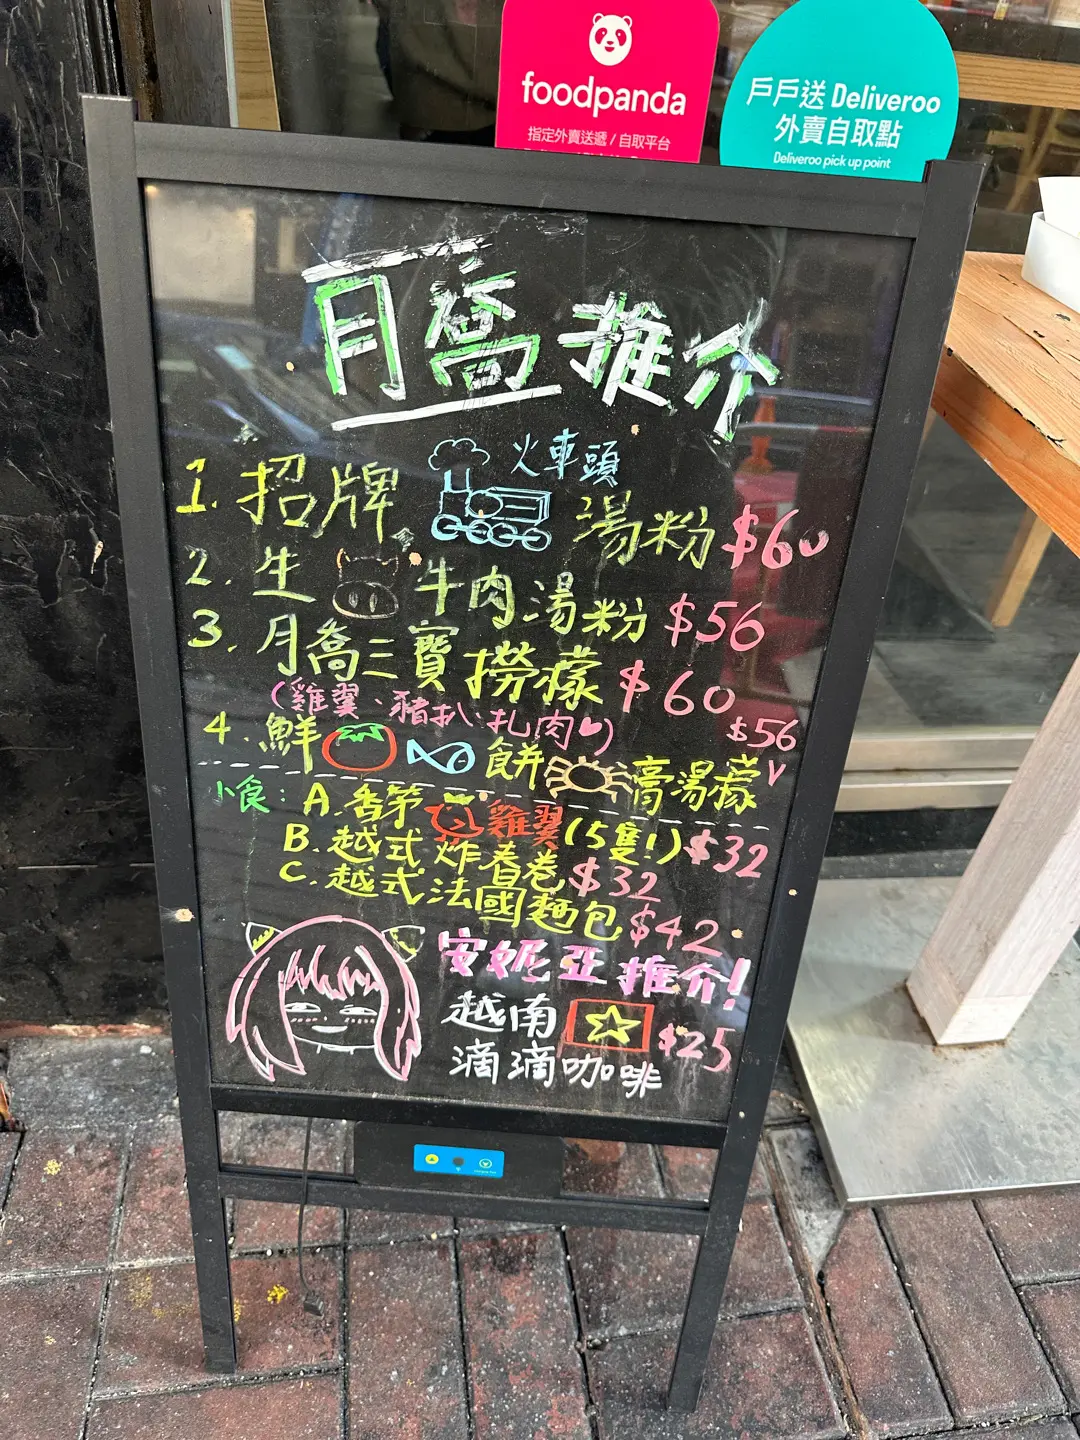 foodpanda
指定外賣送遞 / 自取平台
戶戶送 Deliveroo
外賣自取點
Deliveroo pick up point
月喬推介
1. 招牌 火車頭 湯粉 $60
2. 生牛肉湯粉 $56
3. 月喬三寶撈檬 $60
(雞翼、豬扒、扎肉)
4. 鮮 餅 膏湯檬 $56
小食: A. 香茅雞翼(5隻!) $32
B. 越式炸春卷 $32
C. 越式法國麵包 $42
安妮亞推介!
越南 $25
滴滴咖啡